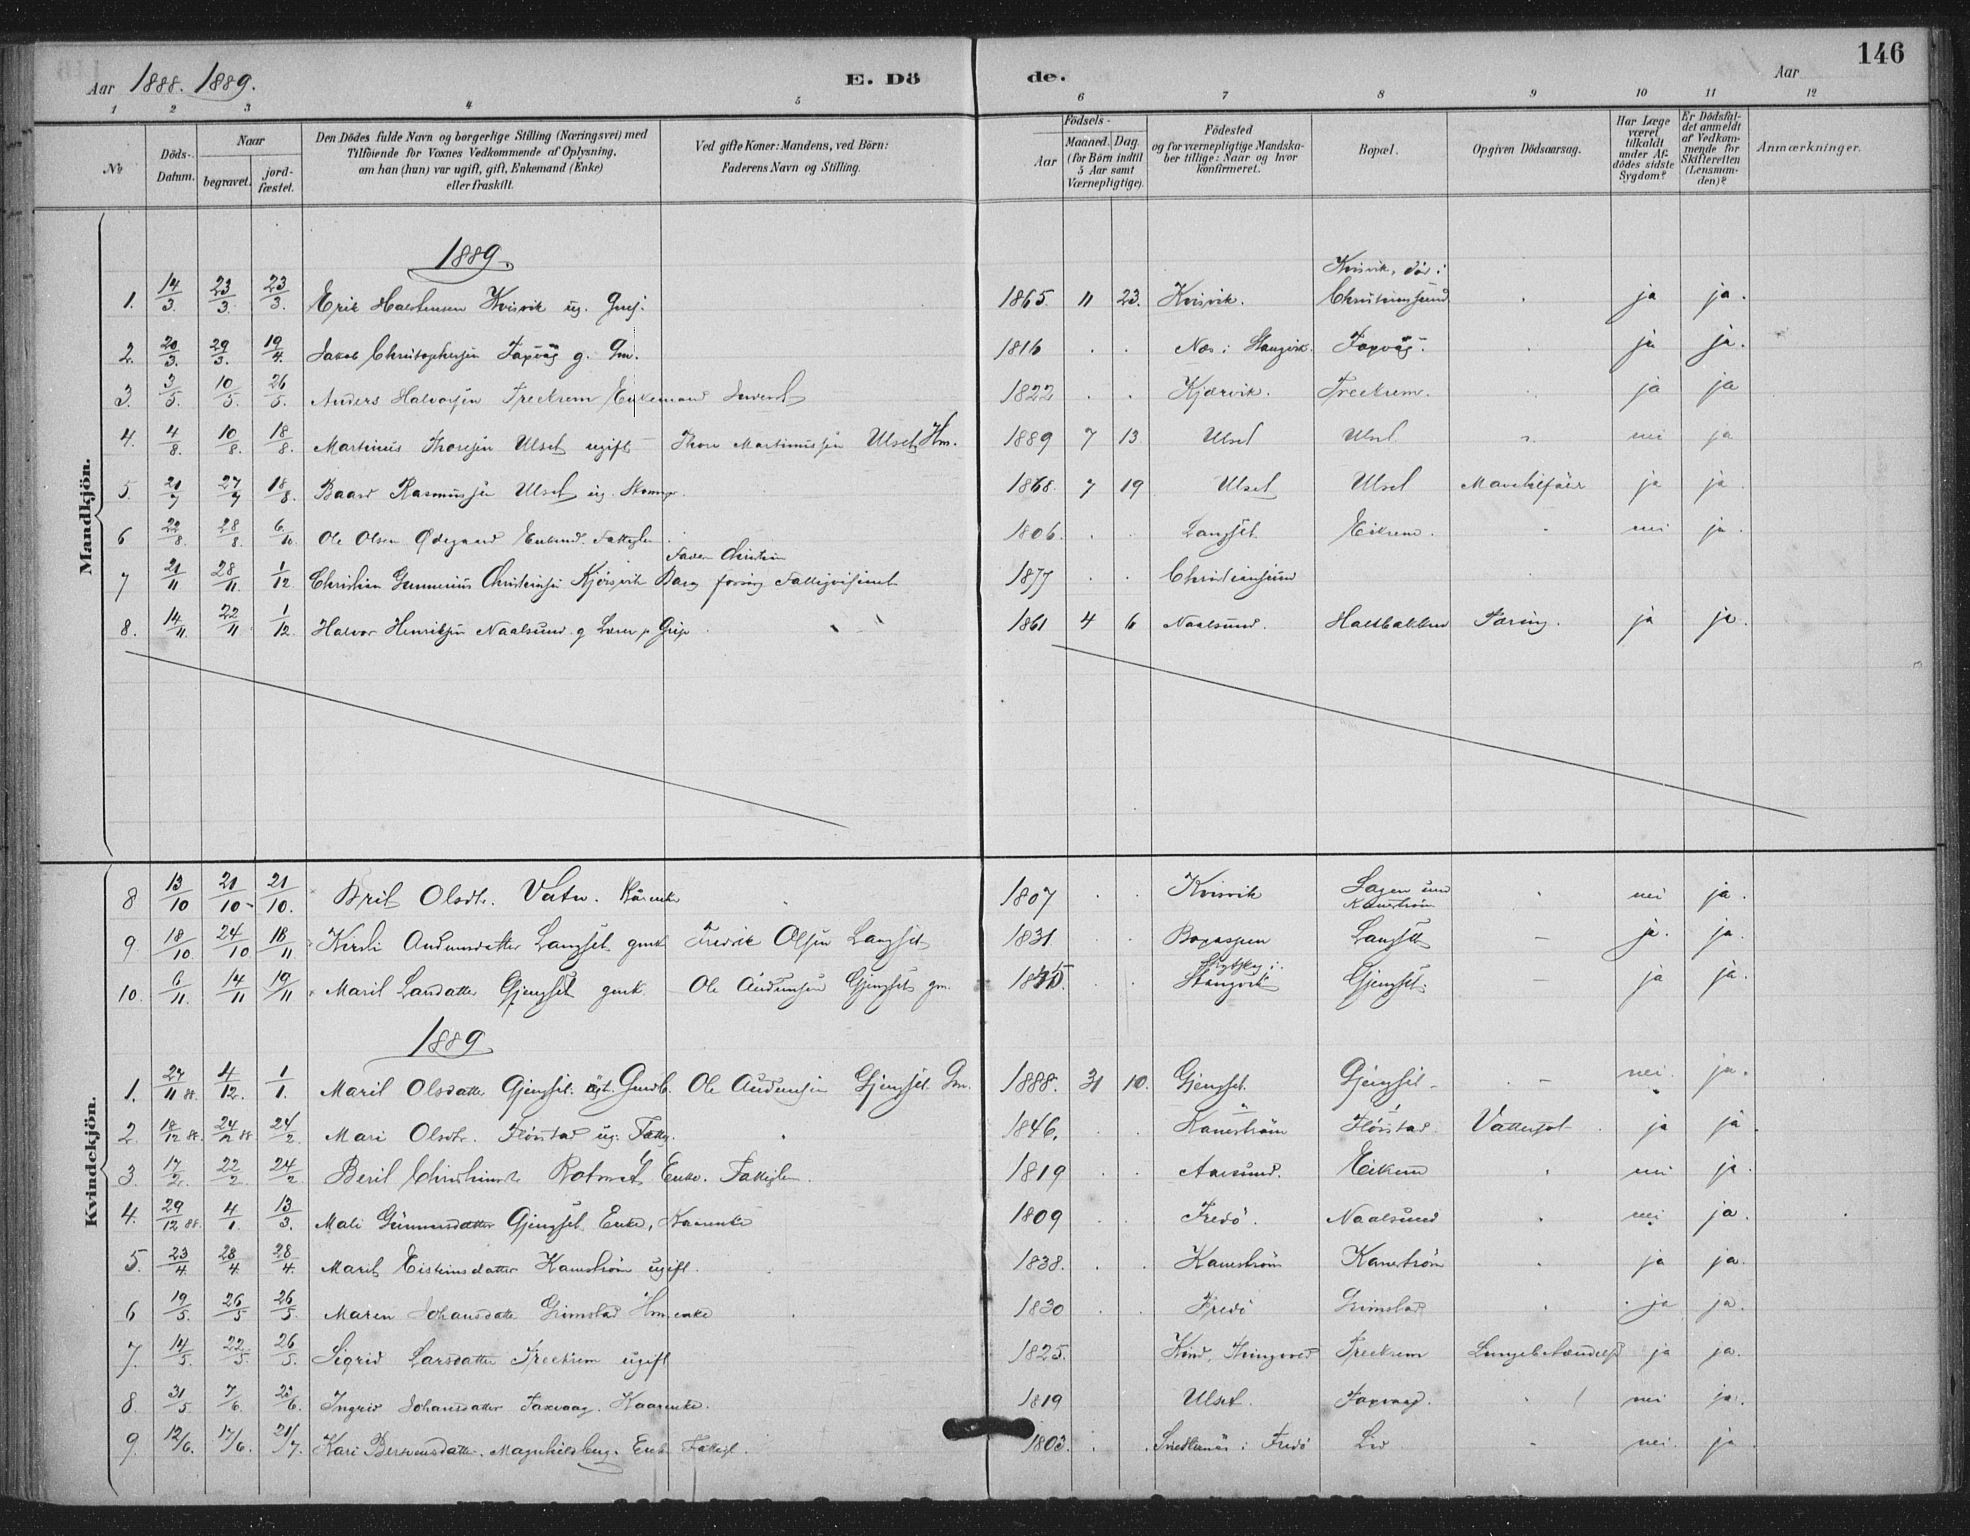 146
Aar 1888. 1889. E. Dö de. Aar
1 2 3 4 5 6 7 8 9 10 11 12
No Döds-Datum. Naar begravet. jordfæstet. Den Dödes fulde Navn og borgerlige Stilling (Næringsvei) med Tilföiende for Voxnes Vedkommende af Oplysning, om han (hun) var ugift, gift, Enkemand (Enke) eller fraskilt. Ved gifte Koner: Mandens, ved Börn: Faderens Navn og Stilling. Födsels- Aar Maaned. Dag. (for Börn indtil 5 Aar samt Værnepligtige). Födested og for værnepligtige Mandskaber tillige: Naar og hvor konfirmeret. Bopæl. Opgiven Dödsaarsag. Har Læge været tilkaldt under Afdödes sidste Sygdom? Er Dödsfaldet anmeldt af Vedkommende for Skifteretten (Lensmanden)? Anmærkninger.
Mandkjön.
1889.
1. 14/3. 23/3. 23/3. Erik Halstensen Kvisvik ug. 1865. 11 23. Kvisvik. Kvisvik, död i Christiansund ja ja.
2. 20/3. 29/3. 19/4. Jakob Christophersen Faxvåg g. Gm. 1816 Næs i Stangvik. Faxvåg. ja ja.
3. 3/5. 10/5. 26/5. Anders Halvorsen Treekrem Enkemand 1822 Kjørvik. Treekrem. ja ja
4. 4/8 10/8. 18/8. Martinus Thoresen Ulset ugift Thore Martinussen Ulset Hm. 1889 7 13 Ulset Ulset nei ja
5. 21/7 27/7 18/8. Baard Rasmussen Ulset ug. 1868. 7 19 Ulset Ulset ja ja.
6 22/8. 28/8. 6/10 Ole Olsen Ødegaard Enkemd. Fattiglem 1806. Langset Eikrem. nei ja.
7 21/11 28/11. 1/12 Christian Gunnerius Christensen Kjørsvik Fader Christian 1877 Christiansund
8. 14/11 22/11 1/12. Halvor Henriksen Naalsund g. Lærer p Grip 1861 4 6 Naalsund. Haltbakken Tæring. ja ja.
Kvindekjön.
8 13/10 21/10. 21/10. Brit Olsdtr. Vatn. Kårenke 1807 Kvisvik Hagen und Kanestrøm nei ja.
9. 18/10 24/10 18/11 Kirsti Audunsdatter Langset gmk Fredrik Olsen Langset 1831. Langset ja. ja.
10. 6/11. 14/11 19/11 Marit Larsdatter Gjengset gmk Ole Audunsen Gjengset gm. Stangvik Gjengset. ja ja.
1889
1. 27/11 88. 4/12. 1/1. Marit Olsdatter Gjengset. Ole Audunsen Gjengset Gm. 1888. 31 10. Gjengset. Gjengset nei. ja.
2. 18/12 88. 24/12 88 24/2. Mari Olsdtr. Flöistad ug. Fattg. 1846. Kanestrøm Flöistad. Vattersot ja ja.
3. 17/2. 22/2. 24/2 Berit Christiansdtr Rotnæs Enke. Fattiglem 1819 Aarsund. Eikrem nei ja.
4. 29/12 88. 4/1. 13/3. Mali Gunnarsdatter Gjengset Enke, Kaarenke 1809 Fredö. Naalsund nei ja.
5. 23/4. 28/4. 28/4. Marit Eistensdatter Kanestrøm ugift. 1838. Kanestrøm Kanestrøm ja ja.
6 19/5. 26/5 26/5. Maren Johansdatter Grimstad Hm.enke 1830 Fredö Grimstad ja ja.
7. 14/5. 22/5. 26/5. Sigrid Larsdatter Treekrem ugift 1825. Thingvold Treekrem Lungebetændelse ja ja.
8. 31/5 7/6. 23/6. Ingrid Johansdatter Faxvaag. Kaarenke. 1819 Ulset. Faxvaag. nei ja.
9. 12/6. 17/6. 21/7. Kari Berstensdatter. Magnhildberg. Enk Fattigl. 1803. i Fredö nei. ja